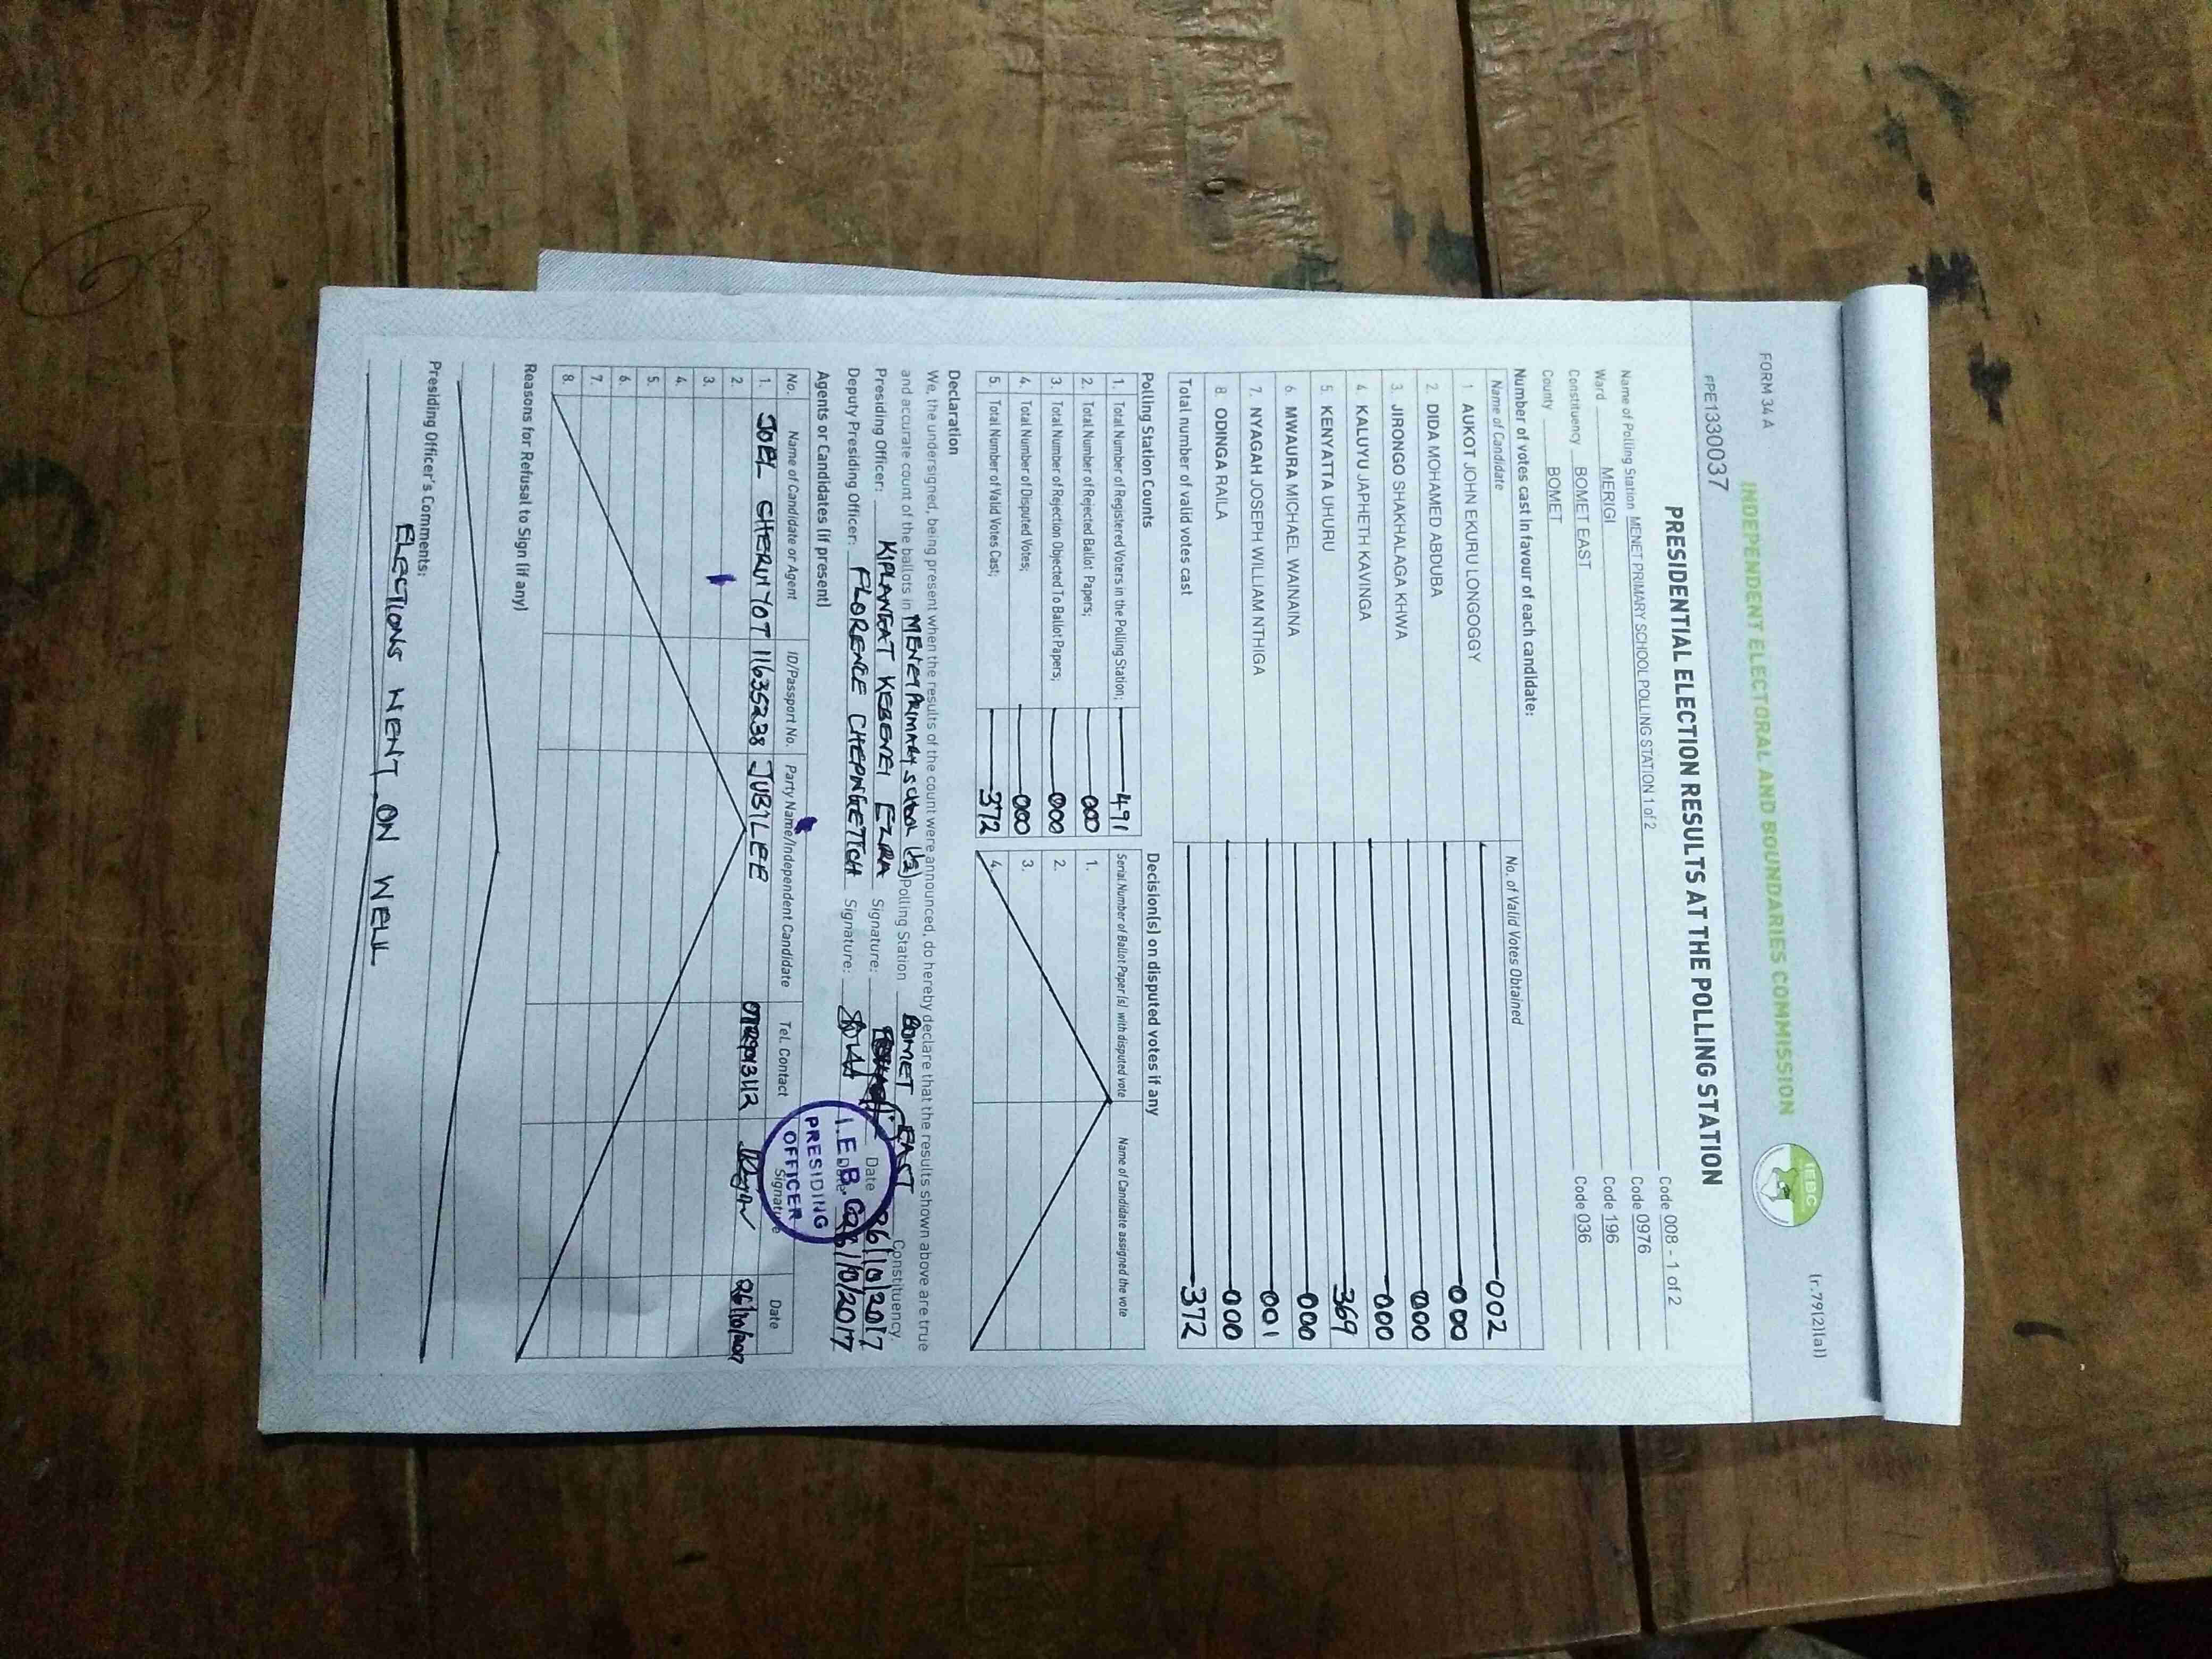 FORM 34 A
(r.79(2)(a))
INDEPENDENT ELECTORAL AND BOUNDARIES COMMISSION
IEBC
PPE1330037
PRESIDENTIAL ELECTION RESULTS AT THE POLLING STATION
Name of Polling Station MENET PRIMARY SCHOOL POLLING STATION 1 of 2 Code 008 - 1 of 2
Ward MERIGI Code 0976
Constituency BOMET EAST Code 196
County BOMET Code 036
Number of votes cast in favour of each candidate:
Name of Candidate No. of Valid Votes Obtained
1 AUKOT JOHN EKURU LONGOGGY 002
2. DIDA MOHAMED ABDUBA 000
3. JIRONGO SHAKHALAGA KHWA 000
4 KALUYU JAPHETH KAVINGA 000
5. KENYATTA UHURU 369
6 MWAURA MICHAEL WAINAINA 000
7. NYAGAH JOSEPH WILLIAM NTHIGA 001
8. ODINGA RAILA 000
Total number of valid votes cast 372
Polling Station Counts
1. Total Number of Registered Voters in the Polling Station; 491
2. Total Number of Rejected Ballot Papers; 000
3. Total Number of Rejection Objected To Ballot Papers; 000
4. Total Number of Disputed Votes; 000
5. Total Number of Valid Votes Cast; 372
Decision(s) on disputed votes if any
Serial Number of Ballot Paper(s) with disputed vote Name of Candidate assigned the vote
1.
2.
3.
4.
Declaration
We, the undersigned, being present when the results of the count were announced, do hereby declare that the results shown above are true
and accurate count of the ballots in MENET PRIMARY SCHOOL (1/2) Polling Station BOMET EAST Constituency.
Presiding Officer: KIPLANGAT KEBENEI EZRA Signature: Date 26/10/2017
Deputy Presiding Officer: FLORENCE CHEPNGETICH Signature: Date 26/10/2017
I.E.B.C
PRESIDING
OFFICER
Agents or Candidates (if present)
No. Name of Candidate or Agent ID/Passport No. Party Name/Independent Candidate Tel. Contact Signature Date
1. JOEL CHERUIYOT 11635238 JUBILEE 26/10/2017
2.
3.
4.
5.
6.
7.
8.
Reasons for Refusal to Sign (if any)
Presiding Officer's Comments:
ELECTIONS WENT ON WELL